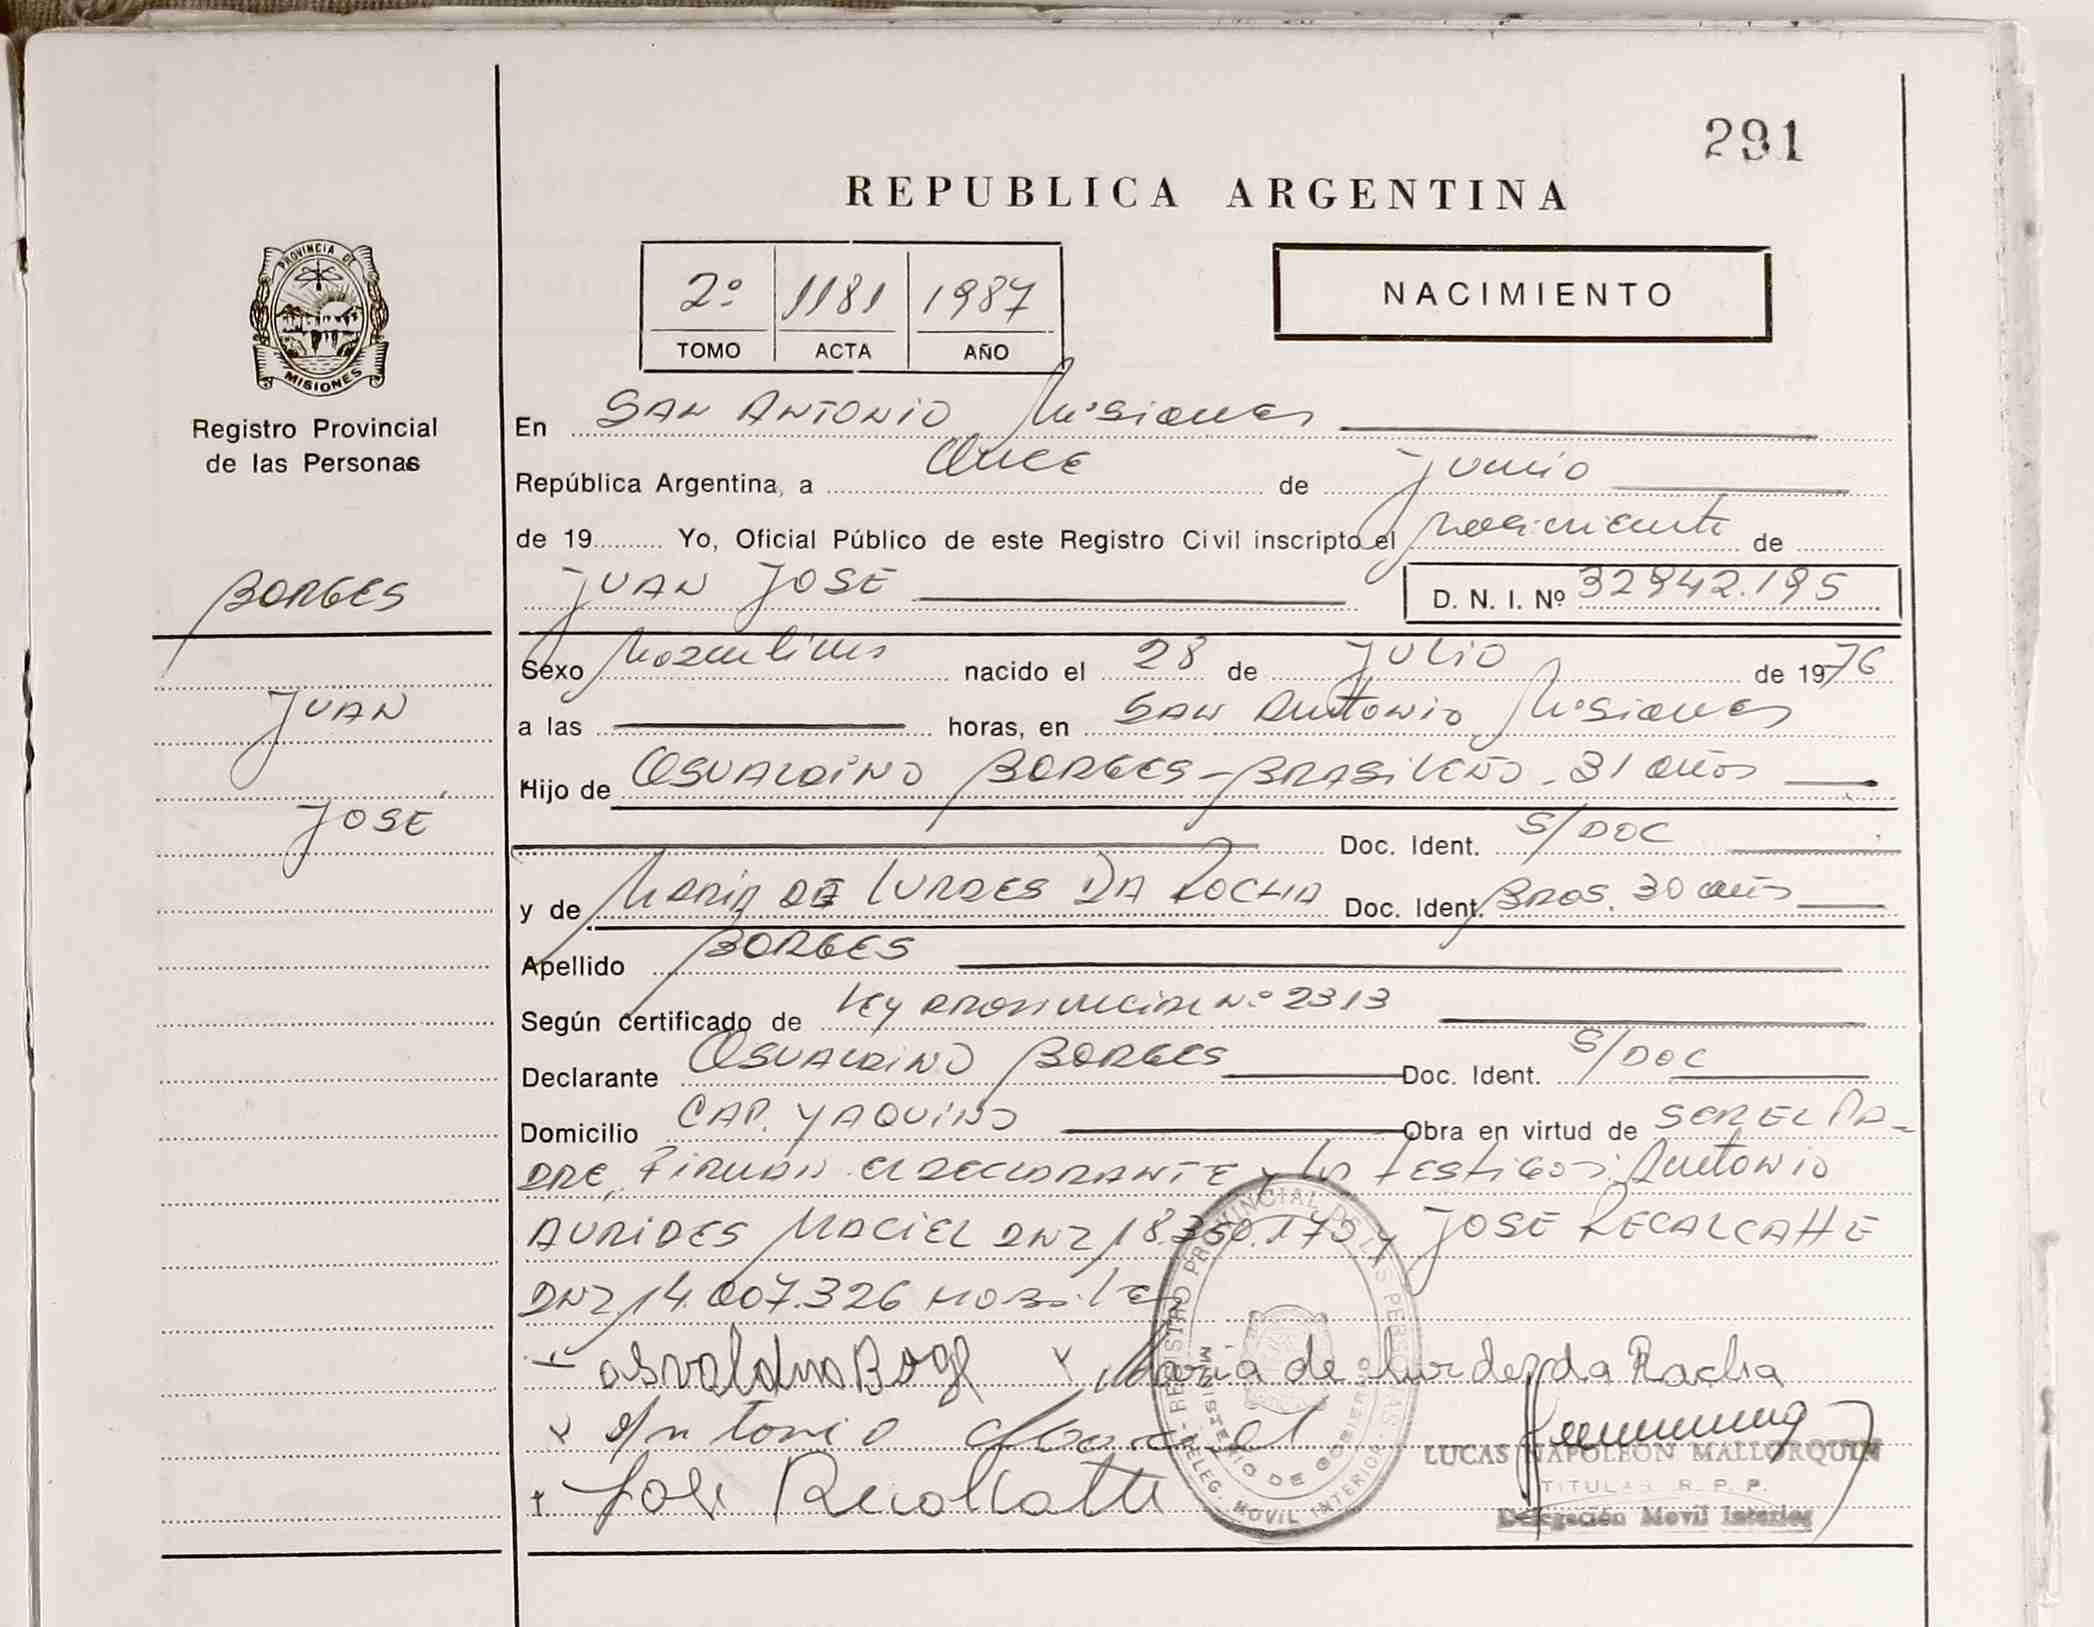 291
REPUBLICA ARGENTINA
PROVINCIA DE
MISIONES
Registro Provincial
de las Personas
2º 1181 1987
TOMO ACTA AÑO
NACIMIENTO
En SAN ANTONIO Misiones
República Argentina, a Once de Junio
de 19.......... Yo, Oficial Público de este Registro Civil inscripto el nacimiento de
JUAN JOSE D. N. I. Nº 32942.195
BORGES
JUAN
JOSE
Sexo Masculino nacido el 28 de JULIO de 1976
a las horas, en SAN Antonio Misiones
Hijo de OSVALDINO BORGES - BRASILEÑO - 31 años
Doc. Ident. S/DOC
y de MARIA DE LURDES DA ROCHA Doc. Ident. BRAS. 30 años
Apellido BORGES
Según certificado de Ley PROVINCIAL Nº 2313
Declarante OSVALDINO BORGES Doc. Ident. S/DOC
Domicilio CAP. YAQUINO Obra en virtud de SER EL PA-
DRE, FIRMAN EL DECLARANTE y los TESTIGOS: Antonio
AURIDES MACIEL DNI 18.350.175 y JOSE RECALCATTE
DNI 14.007.326
Osvaldino Maria de Lurdes da Racha
Antonio
José
REGISTRO PROVINCIAL DE LAS PERSONAS
MINISTERIO DE GOBIERNO
DELEG. MOVIL INTERIOR
LUCAS NAPOLEON MALLORQUIN
TITULAR R. P. P.
Delegación Movil Interior